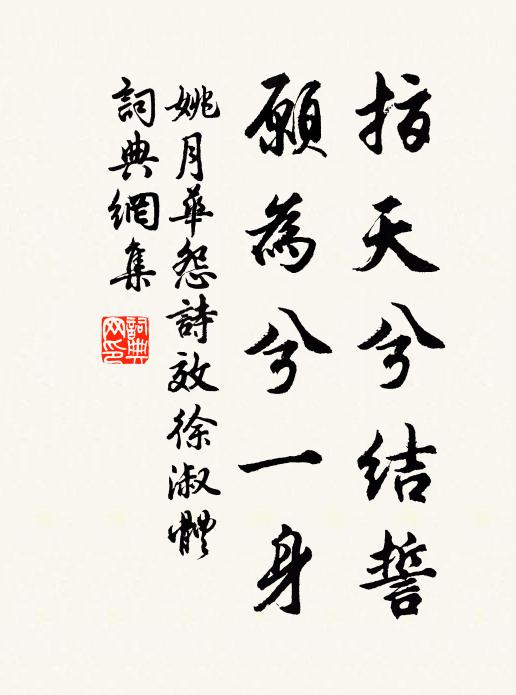 指天兮結誓
願為兮一身
姚月華怨詩效徐淑體
詞典網集
詞典網印